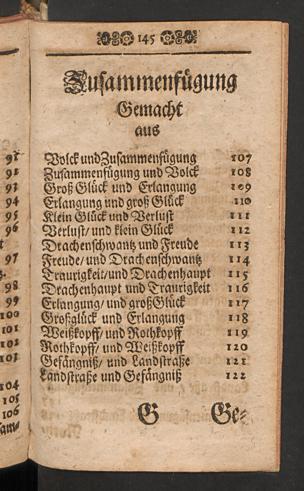 145
Zusammenfügung
Gemacht
aus
Volck und Zusammenfügung 107
Zusammenfügung und Volck 108
Groß Glück und Erlangung 109
Erlangung und groß Glück 110
Klein Glück und Verlust 111
Verlust/ und klein Glück 112
Drachenschwantz und Freude 113
Freude/ und Drachenschwantz 114
Traurigkeit/und Drachenhaupt 115
Drachenhaupt und Traurigkeit 116
Erlangung/ und groß Glück 117
Großglück und Erlangung 118
Weißkopff/ und Rothkopff 119
Rothkopff/ und Weißkopff 120
Gefängniß/ und Landstraße 121
Landstraße und Gefängniß 122
G Ge-
91
92
93
94
95
96
97
98
99
100
101
102
103
104
105
106